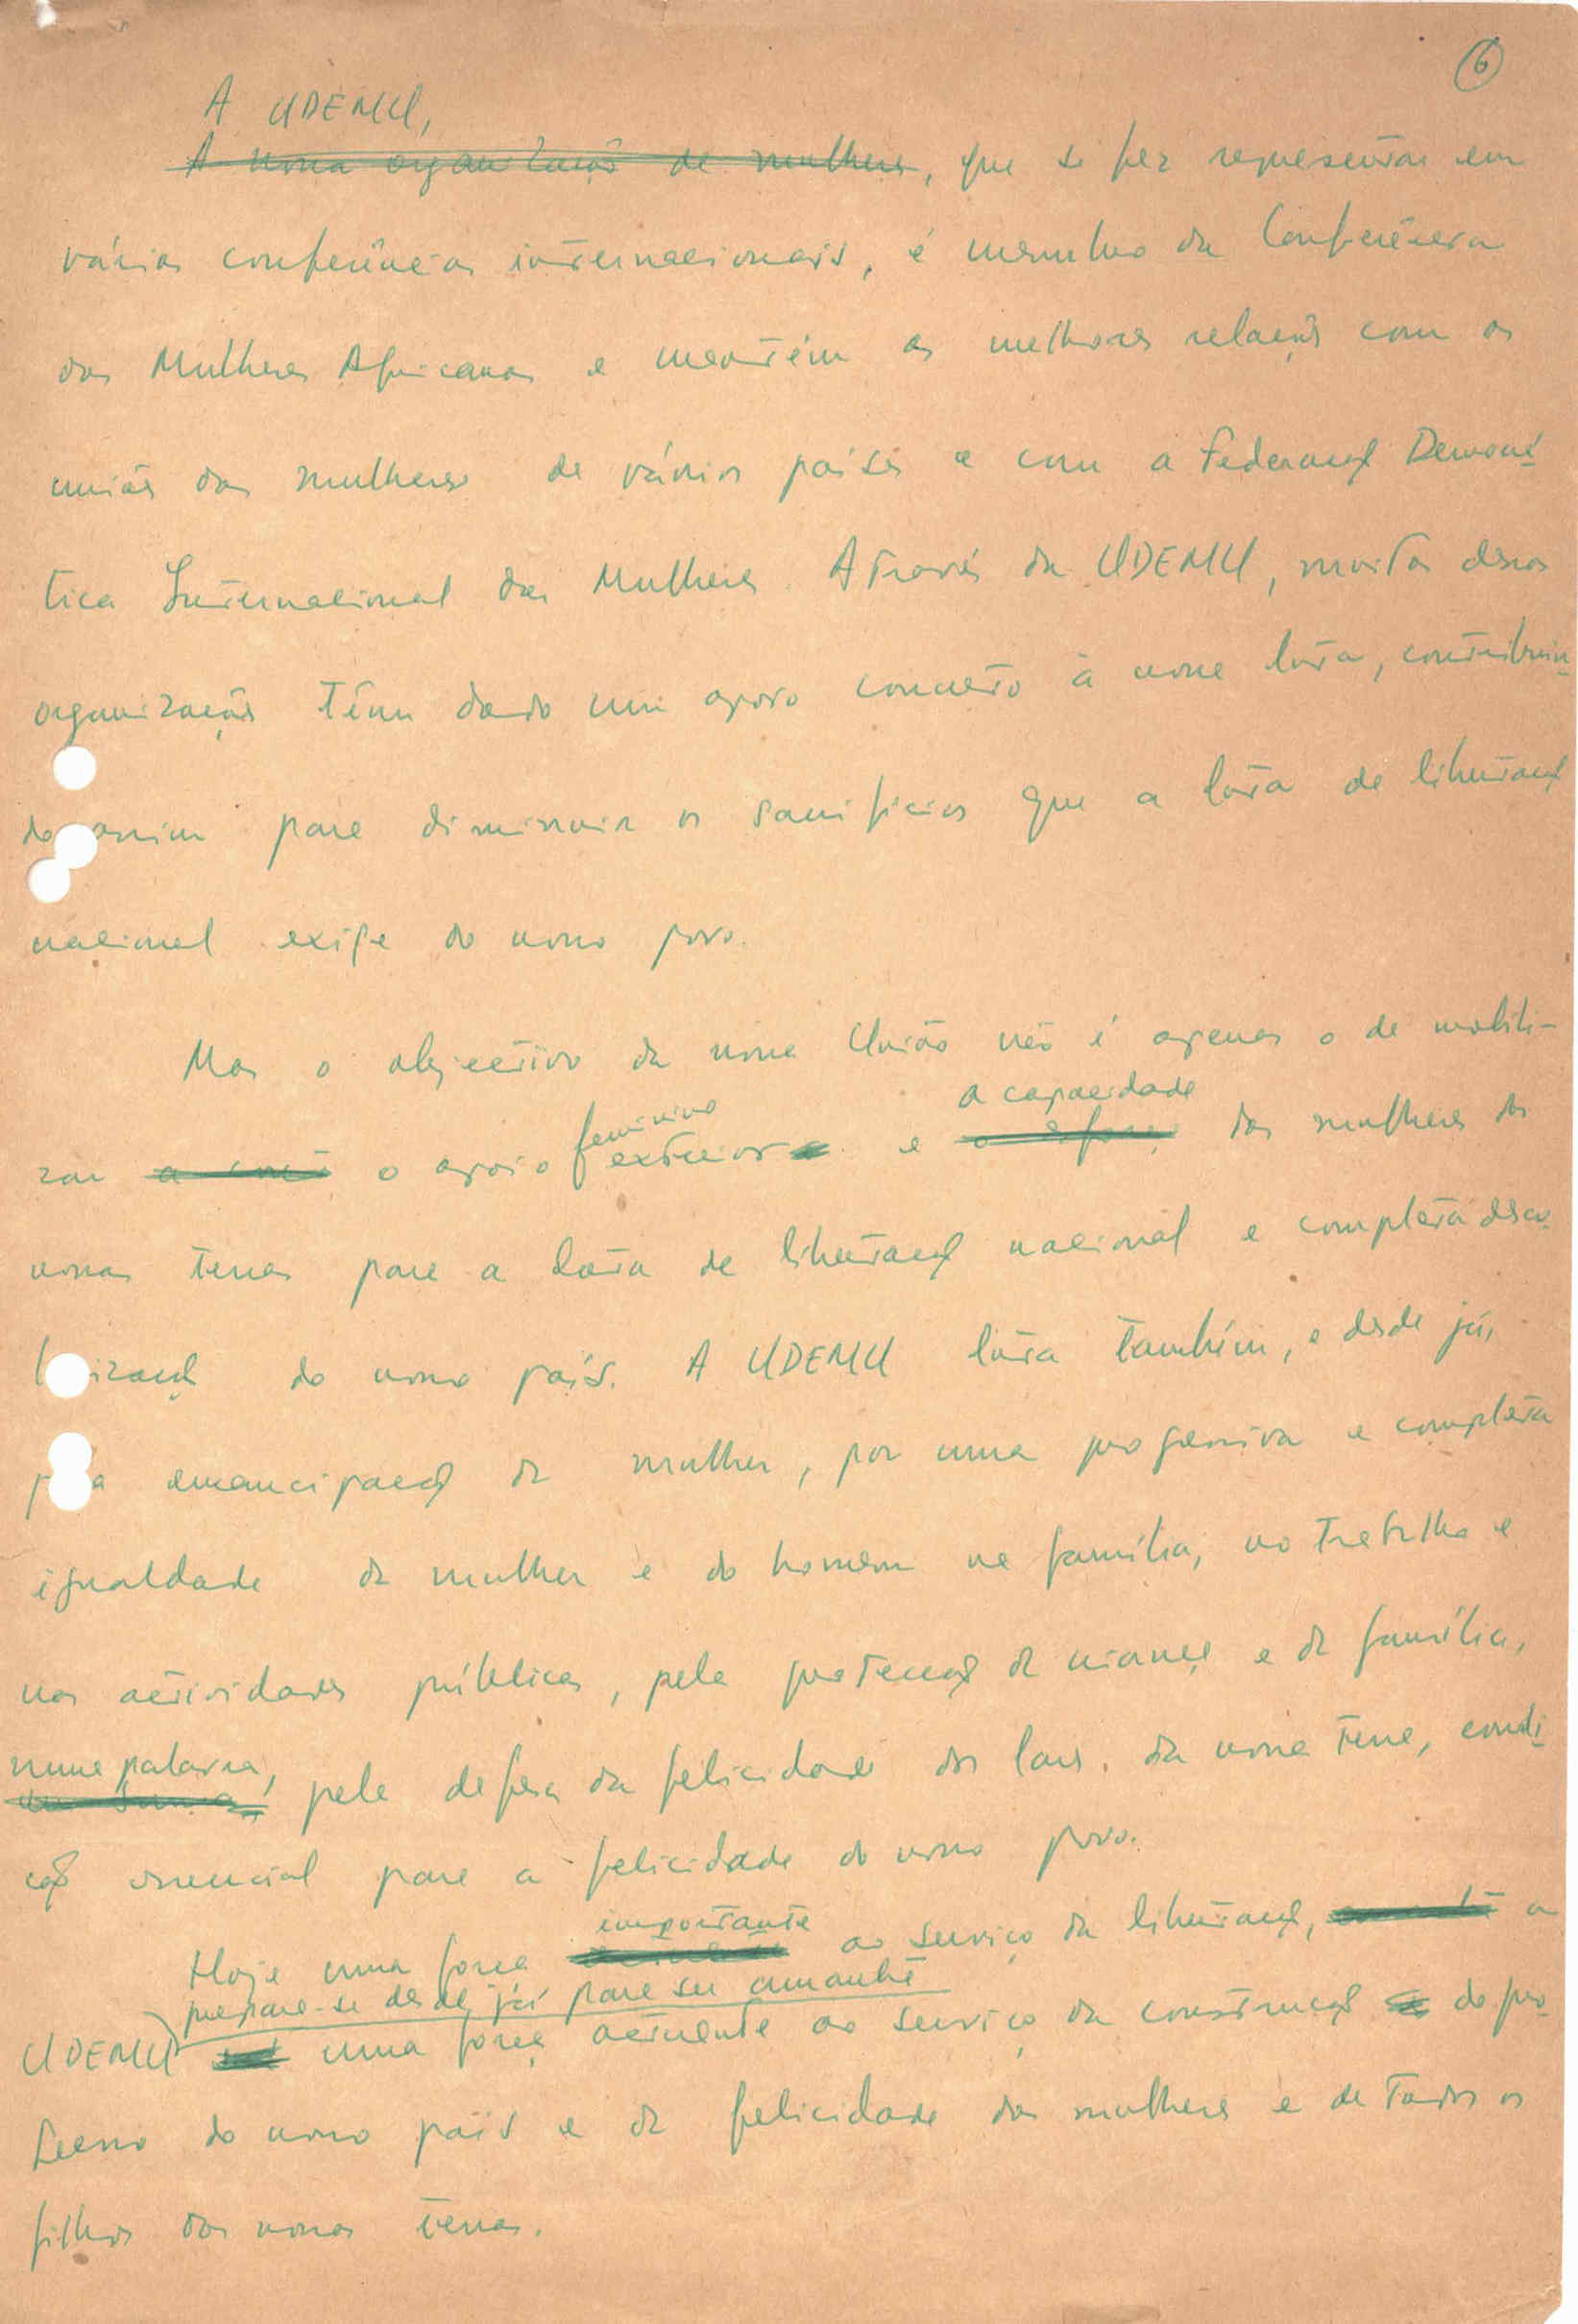 6
A UDEMU,
A nossa organização de mulheres, que se fez representar em
várias conferências internacionais, é membro da Conferência
das Mulheres Africanas e mantém as melhores relações com as
uniões das mulheres de vários países e com a Federação Democrá-
tica Internacional das Mulheres. Através da UDEMU, muitas dessas
organizações têm dado um apoio concreto à nossa luta, contribuin-
do assim para diminuir os sacrifícios que a luta de libertação
nacional exige do nosso povo.
Mas o objectivo da nossa União não é apenas o de mobili-
feminino a capacidade
zar o apoio exterior e o esforço das mulheres das
nossas terras para a luta de libertação nacional e completa desco-
lonização do nosso país. A UDEMU luta também, e desde já,
pela emancipação da mulher, por uma progressiva e completa
igualdade da mulher e do homem na família, no trabalho e
nas actividades públicas, pela protecção da criança e da família,
numa palavra,
em suma, pela defesa da felicidade dos lares da nossa terra, condi-
ção essencial para a felicidade do nosso povo.
importante
Hoje uma força ao serviço da libertação, a
prepara-se desde já para ser amanhã
UDEMU uma força actuante ao serviço da construção do pro-
gresso do nosso país e da felicidade das mulheres e de todos os
filhos das nossas terras.